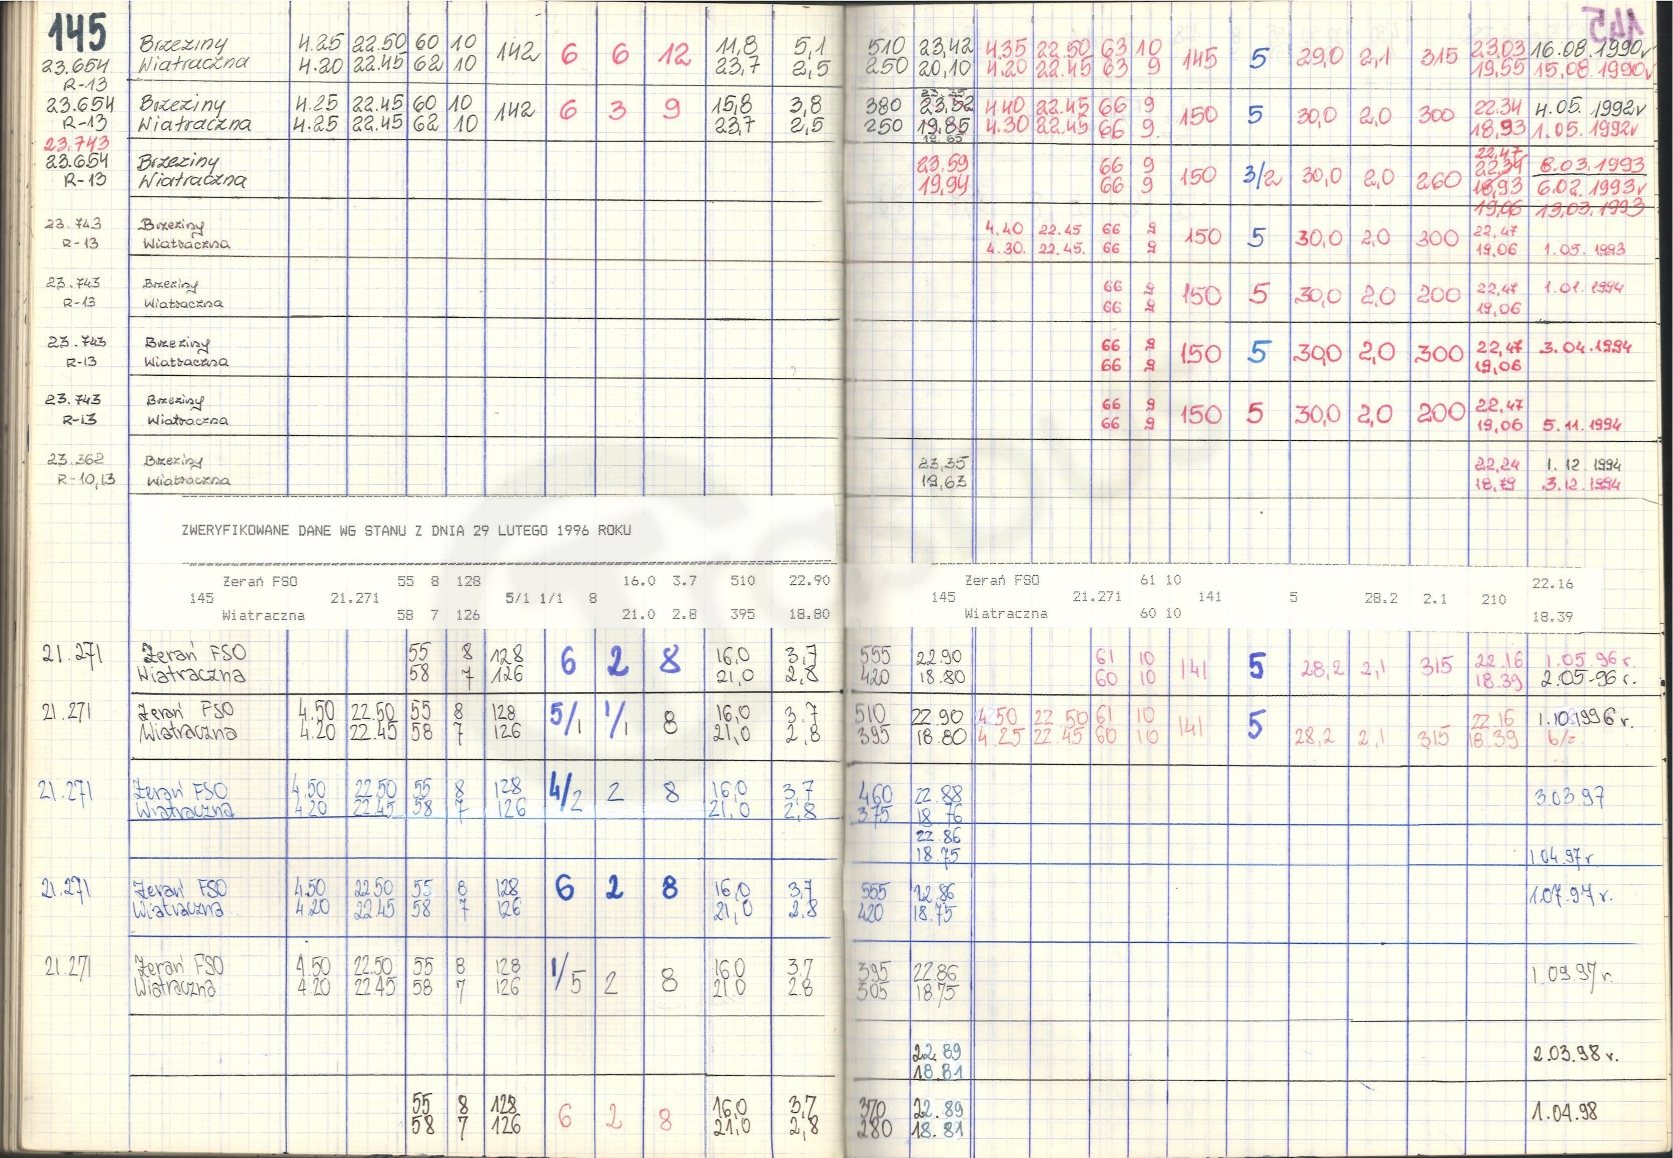 145 145
Brzeziny 4.25 22.50 60 10 142 6 6 12 11,8 5,1 510 23,42 4.35 22.50 63 10 145 5 29,0 2,1 315 23.03 16.08.1990r
23.654 Wiatraczna 4.20 22.45 62 10 23,7 2,5 250 20,10 4.20 22.45 63 9 19,55 15.08.1990r
R-13
23.654 Brzeziny 4.25 22.45 60 10 142 6 3 9 15,8 3,8 380 23,52 4.40 22.45 66 9 150 5 30,0 2,0 300 22.34 4.05.1992r
R-13 Wiatraczna 4.25 22.45 62 10 23,7 2,5 250 19,85 4.30 22.45 66 9. 18,93 1.05.1992r
23.743 19.65
22,47
23.654 Brzeziny 23.59 66 9 150 3/2 30,0 2,0 260 22,34 8.03.1993
R-13 Wiatraczna 19,94 66 9 18,93 6.02.1993r
19,06 13.03.1993
23.743 Brzeziny 4.40 22.45 66 9 150 5 30,0 2,0 300 22,47
R-13 Wiatraczna 4.30. 22.45. 66 9 19,06 1.05.1993
23.743 Brzeziny 66 9 150 5 30,0 2,0 200 22,47 1.01.1994
R-13 Wiatraczna 66 9 19,06
23.743 Brzeziny 66 9 150 5 30,0 2,0 300 22,47 3.04.1994
R-13 Wiatraczna 66 9 19,06
23.743 Brzeziny 66 9 150 5 30,0 2,0 200 22,47
R-13 Wiatraczna 66 9 19,06 5.11.1994
23.362 Brzeziny 23,35 22,24 1.12.1994
R-10,13 Wiatraczna 19,63 18,79 3.12.1994
ZWERYFIKOWANE DANE WG STANU Z DNIA 29 LUTEGO 1996 ROKU
Żerań FSO 55 8 128 16.0 3.7 510 22.90 Żerań FSO 61 10 22.16
145 21.271 5/1 1/1 8 145 21.271 141 5 28.2 2.1 210
Wiatraczna 58 7 126 21.0 2.8 395 18.80 Wiatraczna 60 10 18.39
21.271 Żerań FSO 55 8 128 6 2 8 16,0 3,7 555 22.90 61 10 141 5 28,2 2,1 315 22.16 1.05.96 r.
Wiatraczna 58 7 126 21,0 2,8 420 18.80 60 10 18.39 2.05-96 r.
21.271 Żerań FSO 4.50 22.50 55 8 128 5/1 1/1 8 16,0 3.7 510 22.90 4.50 22.50 61 10 141 5 28,2 2,1 315 22.16 1.10.1996 r.
Wiatraczna 4.20 22.45 58 7 126 21,0 2,8 395 18.80 4.25 22.45 60 10 18.39 b/z
21.271 Żerań FSO 4.50 22.50 55 8 128 4/2 2 8 16,0 3.7 460 22.88 3.03.97
Wiatraczna 4.20 22.45 58 7 126 21,0 2,8 375 18.76
22.86
18.75 1.04.97 r.
21.271 Żerań FSO 4.50 22.50 55 8 128 6 2 8 16,0 3,7 555 22.86 1.07.97 r.
Wiatraczna 4.20 22.45 58 7 126 21,0 2,8 420 18.75
21.271 Żerań FSO 4.50 22.50 55 8 128 1/5 2 8 16.0 3.7 395 22.86 1.09.97 r.
Wiatraczna 4.20 22.45 58 7 126 21.0 2.8 305 18.75
22.89 2.03.98 r.
18.81
55 8 128 6 2 8 16,0 3,7 370 22.89 1.04.98
58 7 126 21,0 2,8 280 18.81